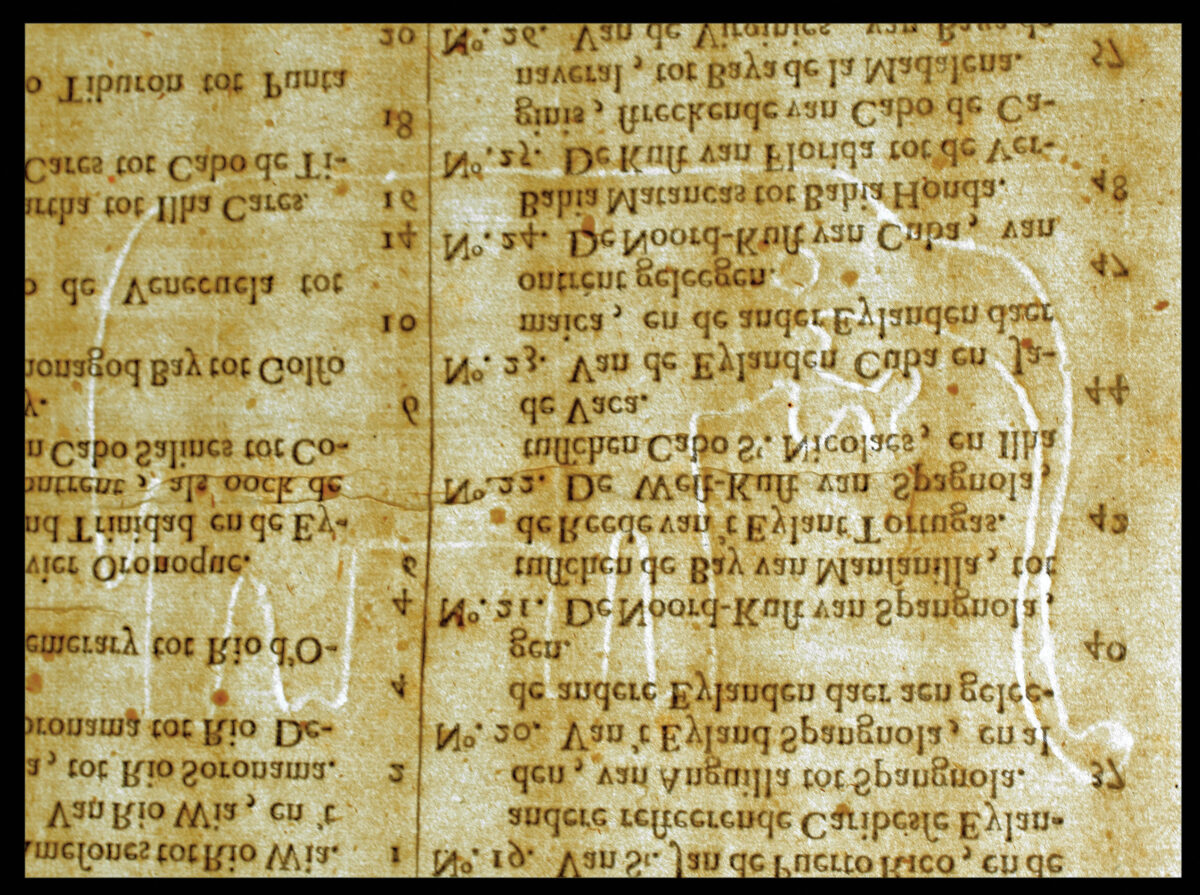 meſones tot Rio Wia. 1
Van Rio Wia, en 't
a, tot Rio Soronama. 2
oronama tot Rio De-
4
emerary tot Rio d'O-
4
vier Oronoque. 6
nd Trinidad en de Ey-
ontrent, als oock de
n Cabo Salines tot Co-
y. 6
monagod Bay tot Golfo
10
o de Venecuela tot
14
artha tot Ilha Cares. 16
Cares tot Cabo de Ti-
18
o Tiburon tot Punta
20
Nº. 19. Van St. Jan de Puerto Rico, en de
andere reſteerende Caribesſe Eylan-
den, van Anguilla tot Spangnola. 37
Nº. 20. Van 't Eyland Spangnola, en al
de andere Eylanden daer aen gelee-
gen. 40
Nº. 21. De Noord-Kuſt van Spangnola,
tuſſchen de Bay van Manſanilla, tot
de Reede van 't Eylant Tortugas. 42
Nº. 22. De Weſt-Kuſt van Spagnola,
tuſſchen Cabo St. Nicolaes, en Ilha
de Vaca. 44
Nº. 23. Van de Eylanden Cuba en Ja-
maica, en de ander Eylanden daer
ontrent geleegen. 47
Nº. 24. De Noord-Kuſt van Cuba, van
Bahia Matancas tot Bahia Honda. 48
Nº. 25. De Kuſt van Florida tot de Ver-
ginis, ſtreckende van Cabo de Ca-
naveral, tot Baya de la Madalena. 57
Nº. 26. Van de Virginies, van Baya de